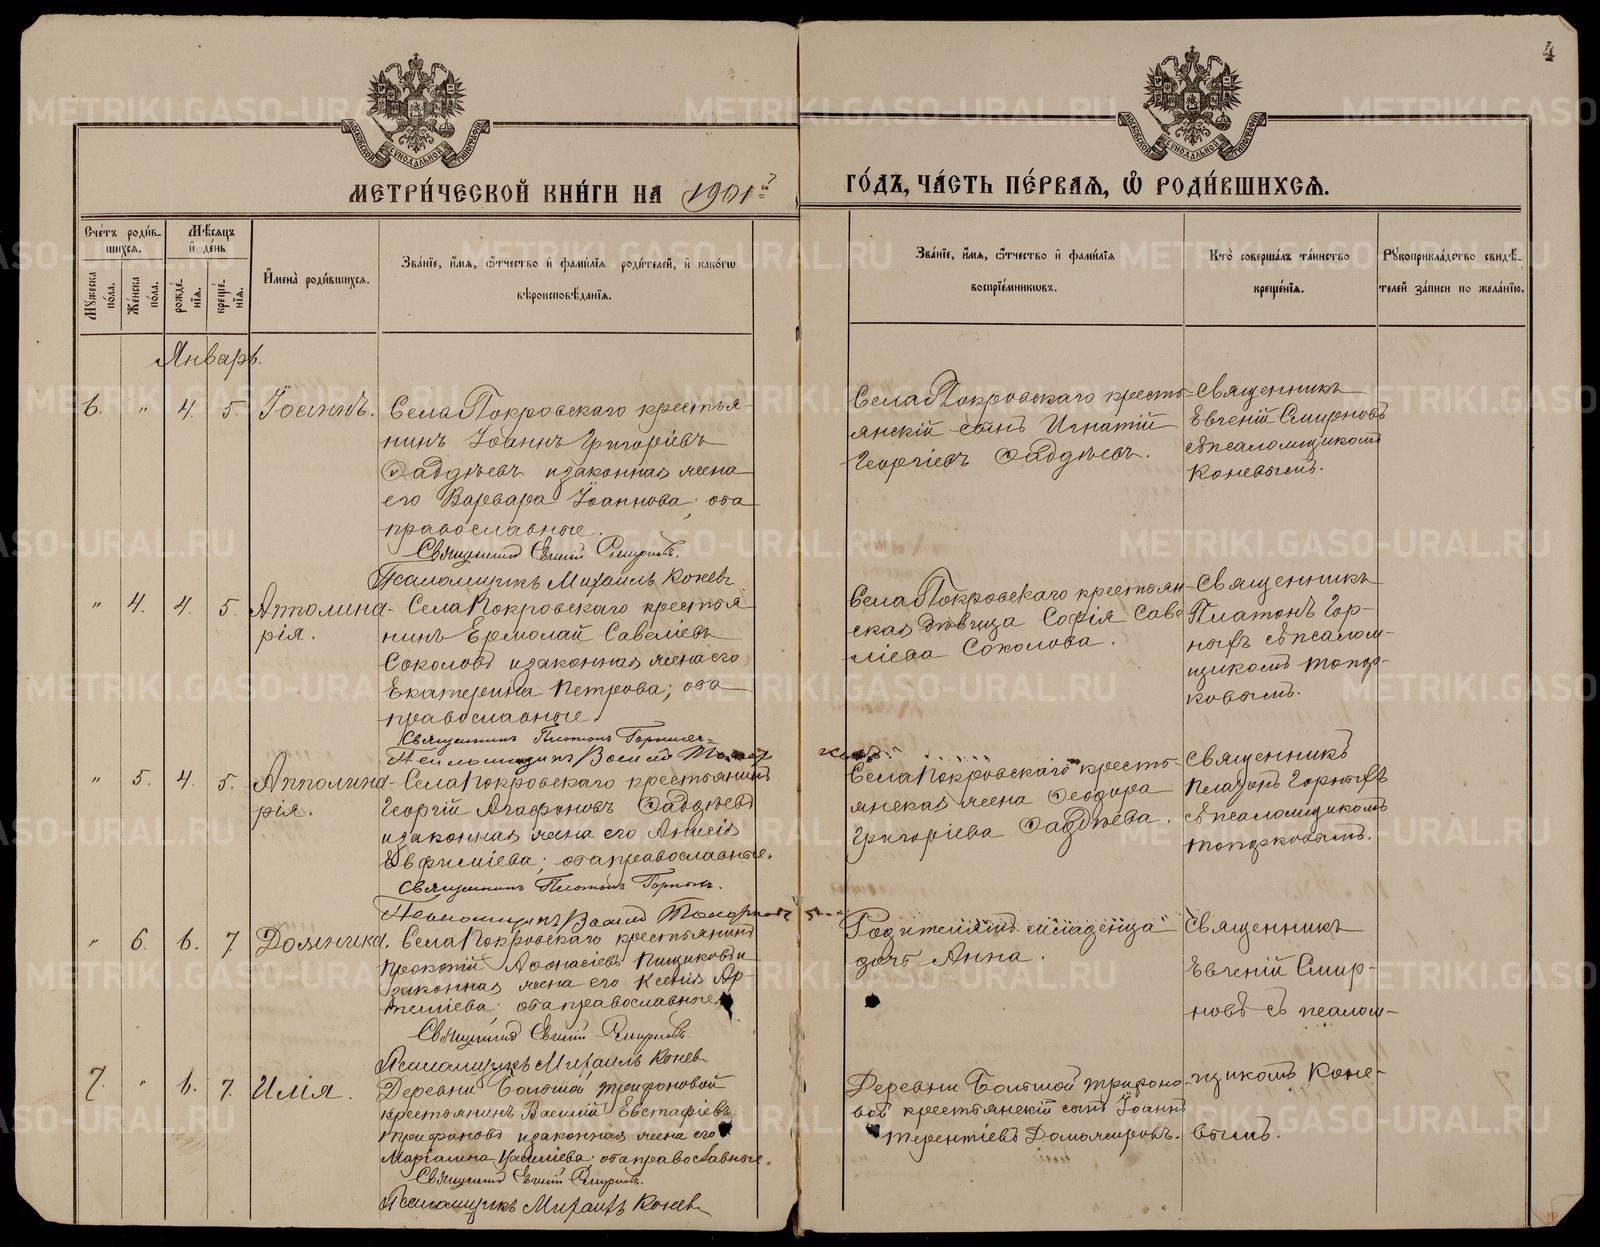 4
МЕТРИ́ЧЕСКОЙ КНИ́ГИ НА 1901й
ГО́ДЪ, ЧА́СТЬ ПЕ́РВАЯ, Ѡ РОДИ́ВШИХСЯ.
Сче́тъ роди́в-
шихся.
Мꙋжеска по́ла.
Же́нска по́ла.
Мѣ́сяцъ и де́нь
рожде́-нїя.
креще́-нїя.
И҆мена̀ роди́вшихся.
Зва́нїе, и҆́мя, ѻ҆́тчество и҆ фами́лїя роди́телей, и҆ како́гѡ
вѣроисповѣ́данїя.
Зва́нїе, и҆́мя, ѻ҆́тчество и҆ фами́лїя
воспрїе́мникѡвъ.
Кто̀ соверша́лъ та́инство
креще́нїя.
Рꙋкоприкла́дство свидѣ́-
телей за́писи по жела́нїю.
Январь.
6. " 4. 5. Іоаннъ.
Села Покровскаго крестья-
нинъ Іоаннъ Григоріевъ
Ѳаддѣевъ и законная жена
его Варвара Іоаннова; оба
православные.
Священникъ Евгеній Смирновъ.
Псаломщикъ Михаилъ Коневъ
Села Покровскаго кресть-
янскій сынъ Игнатій
Георгіевъ Ѳаддѣевъ.
Священникъ
Евгеній Смирновъ
съ псаломщикомъ
Коневымъ.
" 4. 4. 5. Апполина-
рія.
Села Покровскаго крестья-
нинъ Ермолай Савеліевъ
Соколовъ и законная жена его
Екатерина Петрова; оба
православные.
Священникъ Платонъ Горныхъ
Псаломщикъ Василій Топорковъ
Села Покровскаго крестьян-
ская дѣвица Софія Саве-
ліева Соколова.
Священникъ
Платонъ Гор-
ныхъ съ псалом-
щикомъ Топор-
ковымъ.
" 5. 4. 5. Апполина-
рія.
Села Покровскаго крестьянинъ
Георгій Агафоновъ Ѳаддѣевъ
и законная жена его Анисія
Евфиміева; оба православные.
Священникъ Платонъ Горныхъ.
Псаломщикъ Василій Топорковъ
Села Покровскаго кресть-
янская жена Ѳеодора
Григоріева Ѳаддѣева.
Священникъ
Платонъ Горныхъ
съ псаломщикомъ
Топорковымъ.
" 6. 6. 7 Домника.
Села Покровскаго крестьянинъ
Прокопій Аѳанасіевъ Пищиковъ и
законная жена его Ксенія Ар-
теміева; оба православные
Священникъ Евгеній Смирновъ.
Псаломщикъ Михаилъ Коневъ
Родителямъ младенца
дочь Анна.
Священникъ
Евгеній Смир-
новъ съ псалом-
7. " 6. 7. Илія.
Деревни Большой Трифоновой
крестьянинъ Василій Евстафіевъ
Трифановъ и законная жена его
Маріамна Василіева; оба православные.
Священникъ Евгеній Смирновъ.
Псаломщикъ Михаилъ Коневъ
Деревни Большой Трифоно-
вой крестьянскій сынъ Іоаннъ
Терентіевъ Домажировъ.
щикомъ Коне-
вымъ.
METRIKI.GASO-URAL.RU